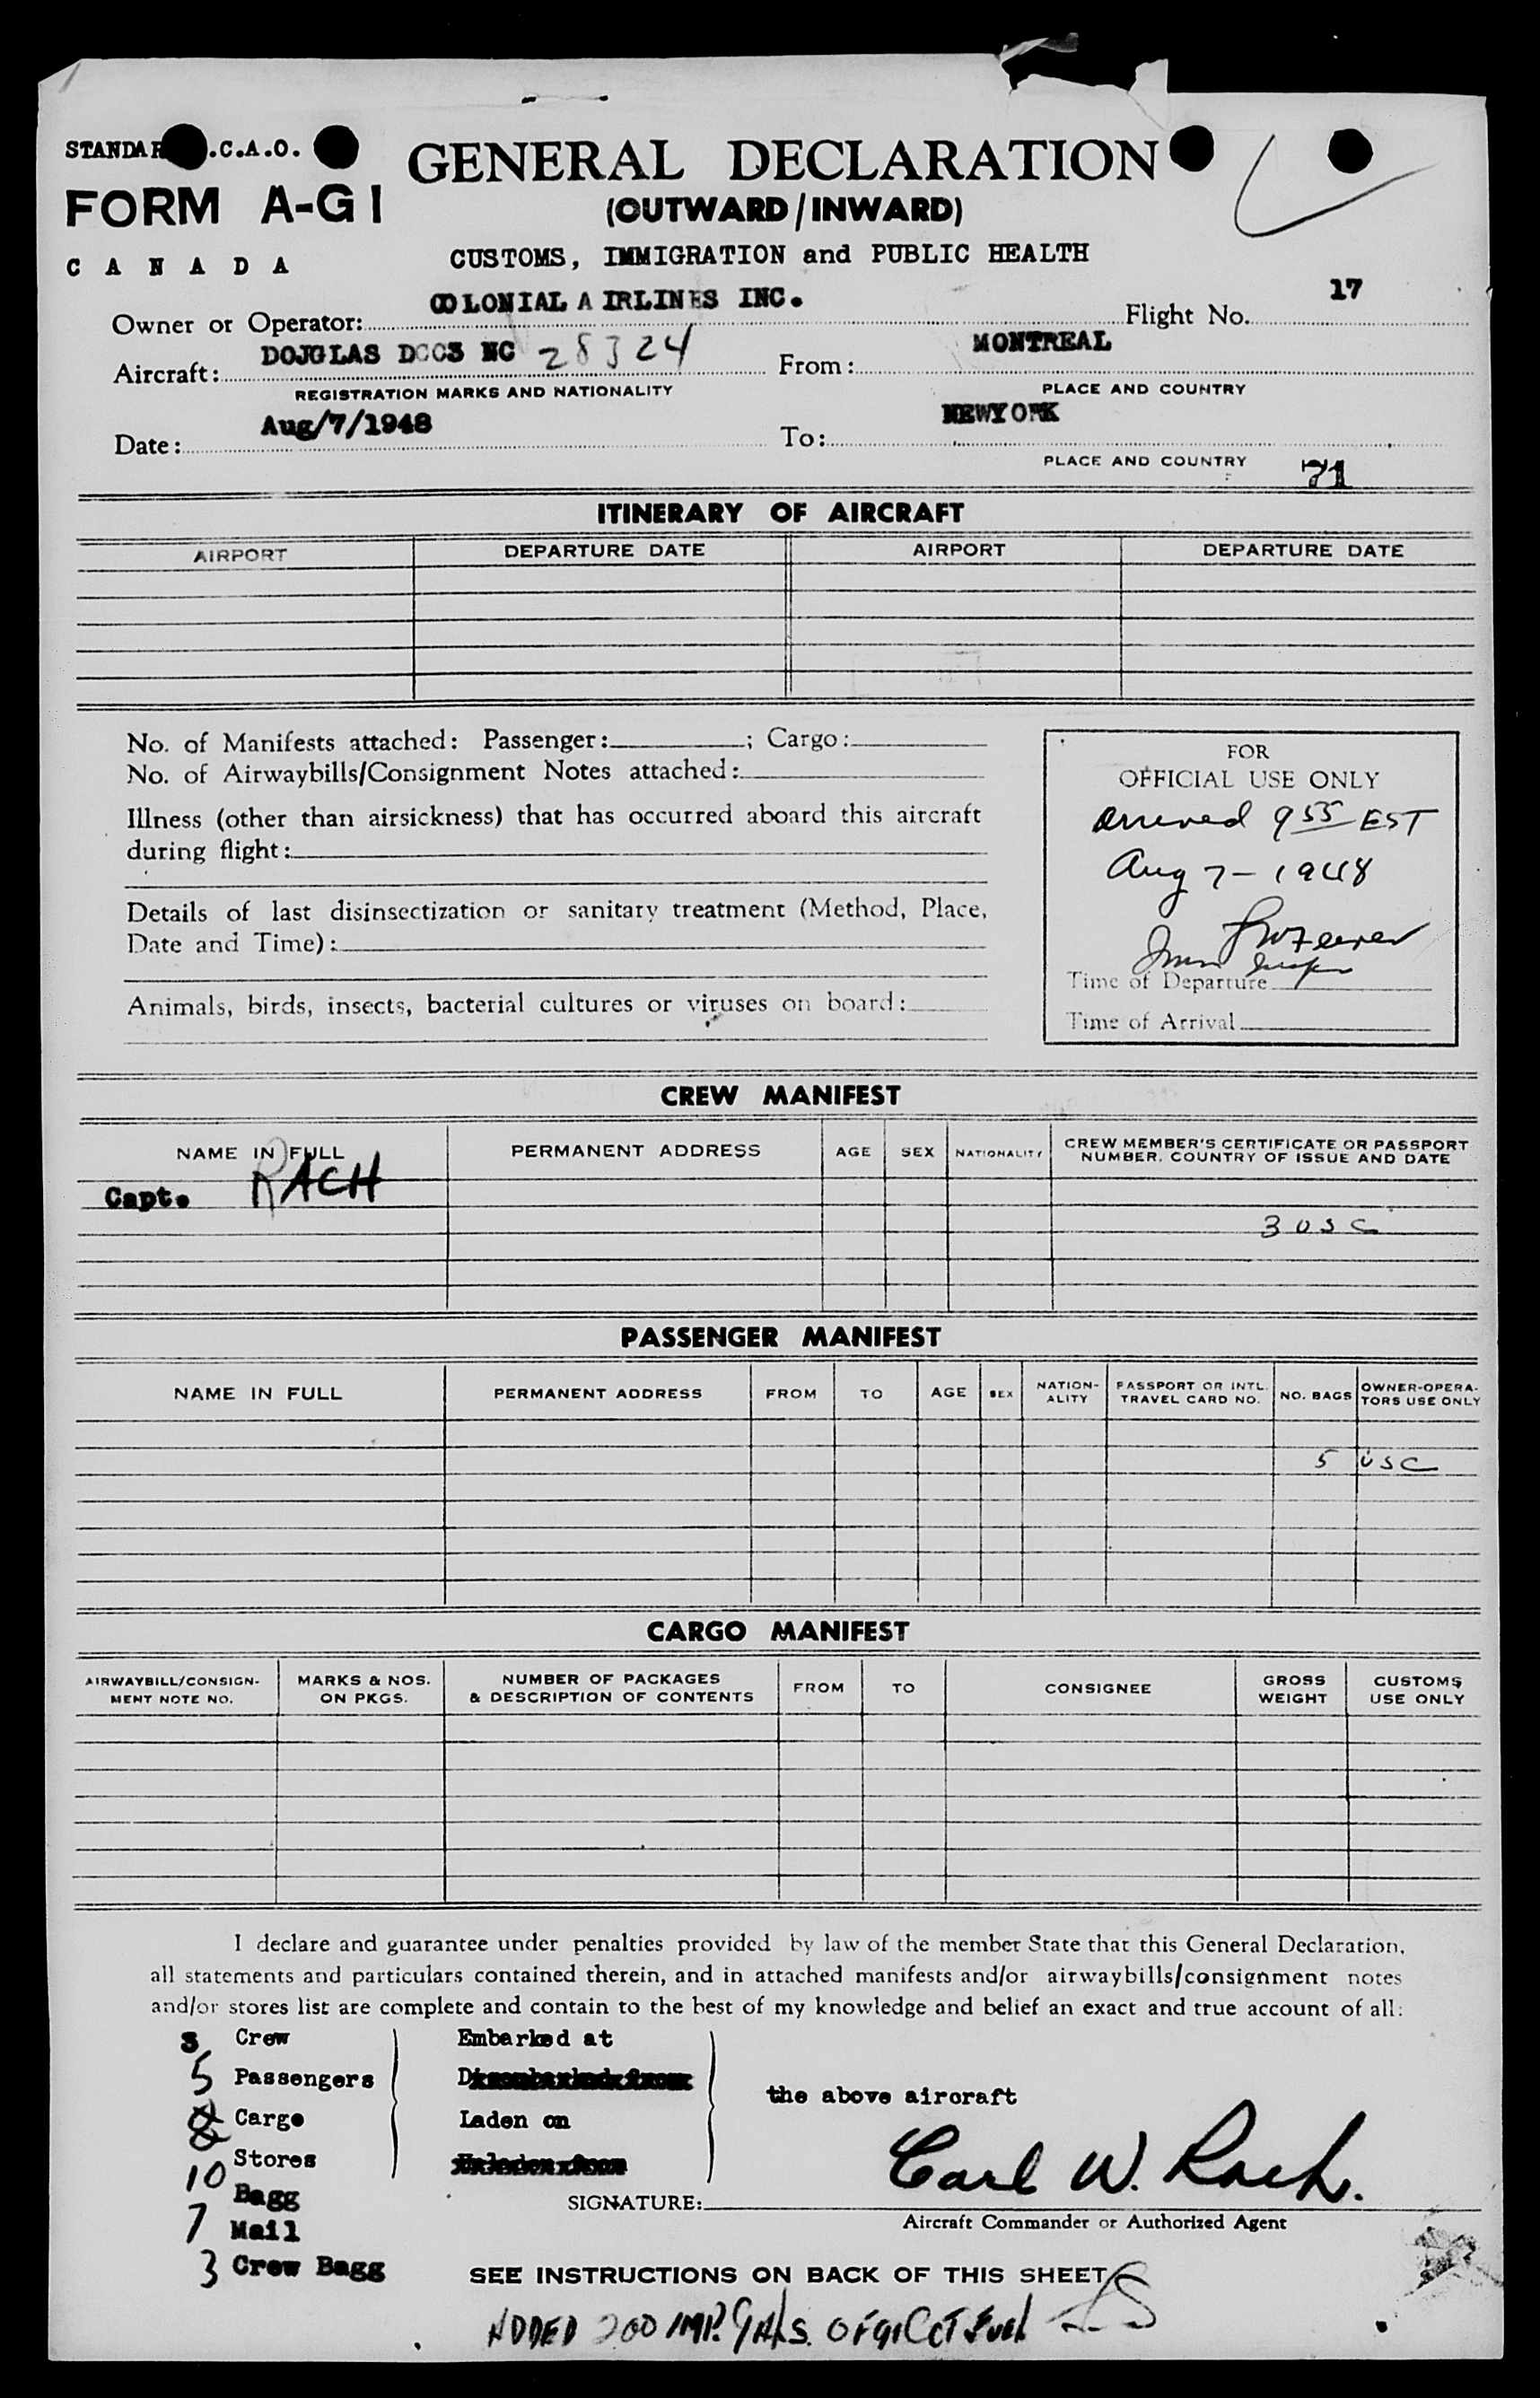 STANDAR .C.A.O.
GENERAL DECLARATION
FORM A-G1
(OUTWARD/INWARD)
CANADA
CUSTOMS, IMMIGRATION and PUBLIC HEALTH
Owner or Operator: COLONIAL AIRLINES INC. Flight No. 17
Aircraft: DOUGLAS DCC3 NC 28324 From: MONTREAL
REGISTRATION MARKS AND NATIONALITY PLACE AND COUNTRY
Date: Aug/7/1948 To: NEWYORK
PLACE AND COUNTRY 71
ITINERARY OF AIRCRAFT
AIRPORT DEPARTURE DATE AIRPORT DEPARTURE DATE
No. of Manifests attached: Passenger: ; Cargo:
No. of Airwaybills/Consignment Notes attached:
Illness (other than airsickness) that has occurred aboard this aircraft
during flight:
Details of last disinsectization or sanitary treatment (Method, Place,
Date and Time):
Animals, birds, insects, bacterial cultures or viruses on board:
FOR
OFFICIAL USE ONLY
Arrived 9 55 EST
Aug 7-1948
Time of Departure
Time of Arrival
CREW MANIFEST
NAME IN FULL PERMANENT ADDRESS AGE SEX NATIONALITY CREW MEMBER'S CERTIFICATE OR PASSPORT
NUMBER, COUNTRY OF ISSUE AND DATE
Capt. RACH
3 USC
PASSENGER MANIFEST
NAME IN FULL PERMANENT ADDRESS FROM TO AGE SEX NATION-
ALITY PASSPORT OR INTL.
TRAVEL CARD NO. NO. BAGS OWNER-OPERA-
TORS USE ONLY
5 USC
CARGO MANIFEST
AIRWAYBILL/CONSIGN-
MENT NOTE NO. MARKS & NOS.
ON PKGS. NUMBER OF PACKAGES
& DESCRIPTION OF CONTENTS FROM TO CONSIGNEE GROSS
WEIGHT CUSTOMS
USE ONLY
I declare and guarantee under penalties provided by law of the member State that this General Declaration,
all statements and particulars contained therein, and in attached manifests and/or airwaybills/consignment notes
and/or stores list are complete and contain to the best of my knowledge and belief an exact and true account of all:
3 Crew Embarked at
5 Passengers
the above aircraft
Cargo Laden on
Stores
10 Bagg
Carl W. Rach.
SIGNATURE:
7 Mail
Aircraft Commander or Authorized Agent
3 Crew Bagg
SEE INSTRUCTIONS ON BACK OF THIS SHEET
ADDED 200 IMP. GALS. OF 91 OCT FUEL